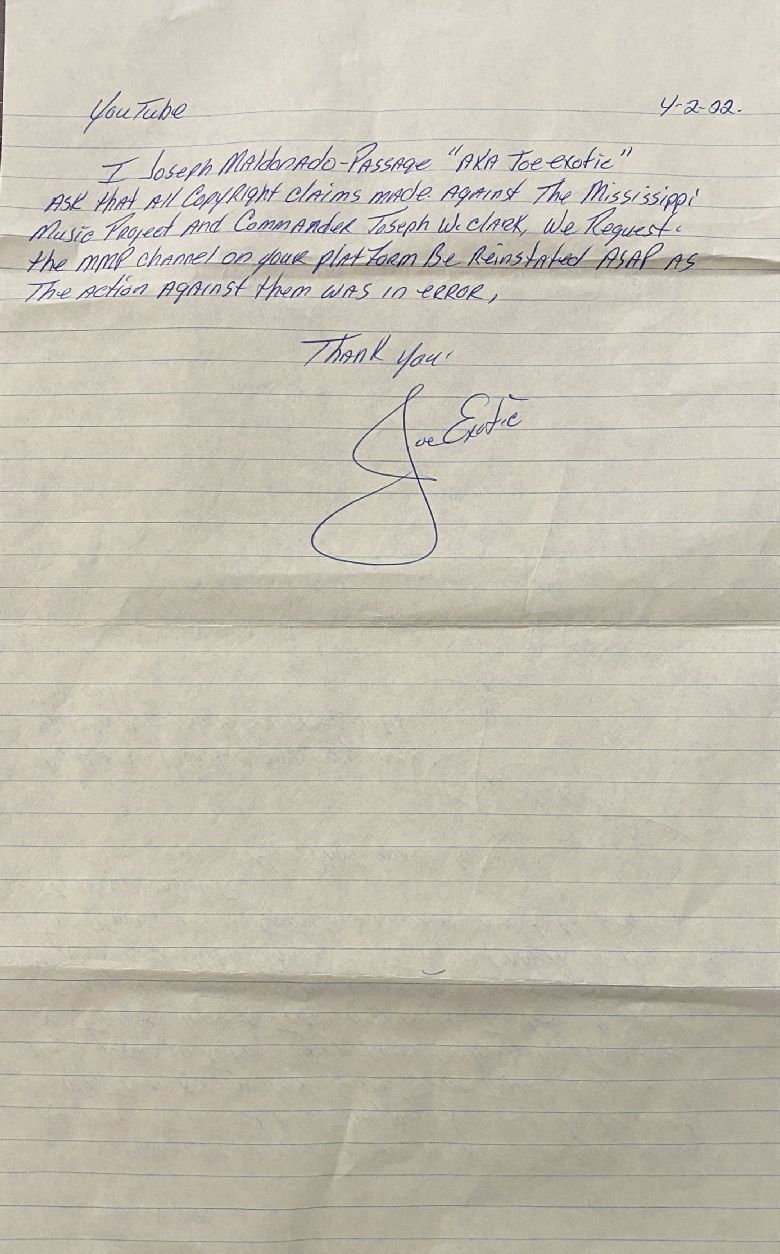 YouTube 4-2-22.
I Joseph Maldonado-Passage "AKA Joe exotic"
ASK that All CopyRight claims made Against The Mississippi
Music Project And Commander Joseph W. Clark, We Request.
the MMP channel on your platform Be Reinstated ASAP AS
The Action Against them was in error,
Thank you.
Joe Exotic